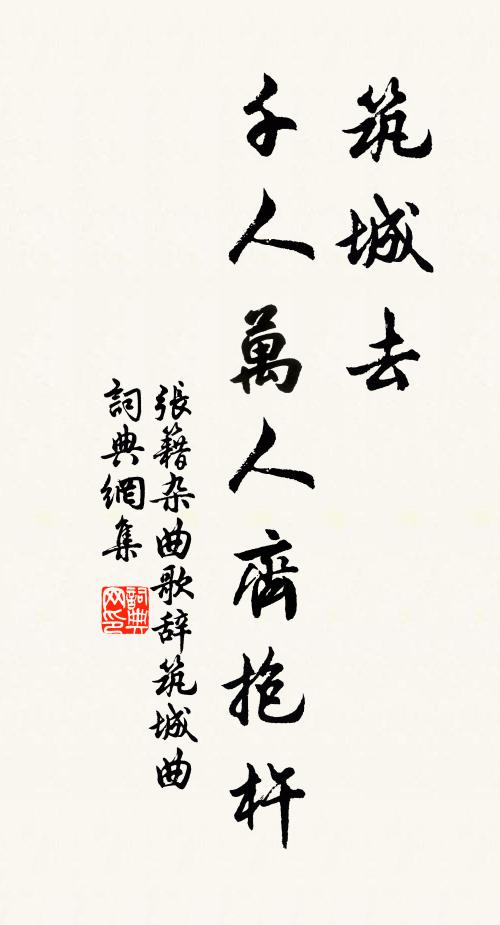 筑城去
千人萬人齊抱杵
張籍杂曲歌辞筑城曲
詞典網集
詞典网印